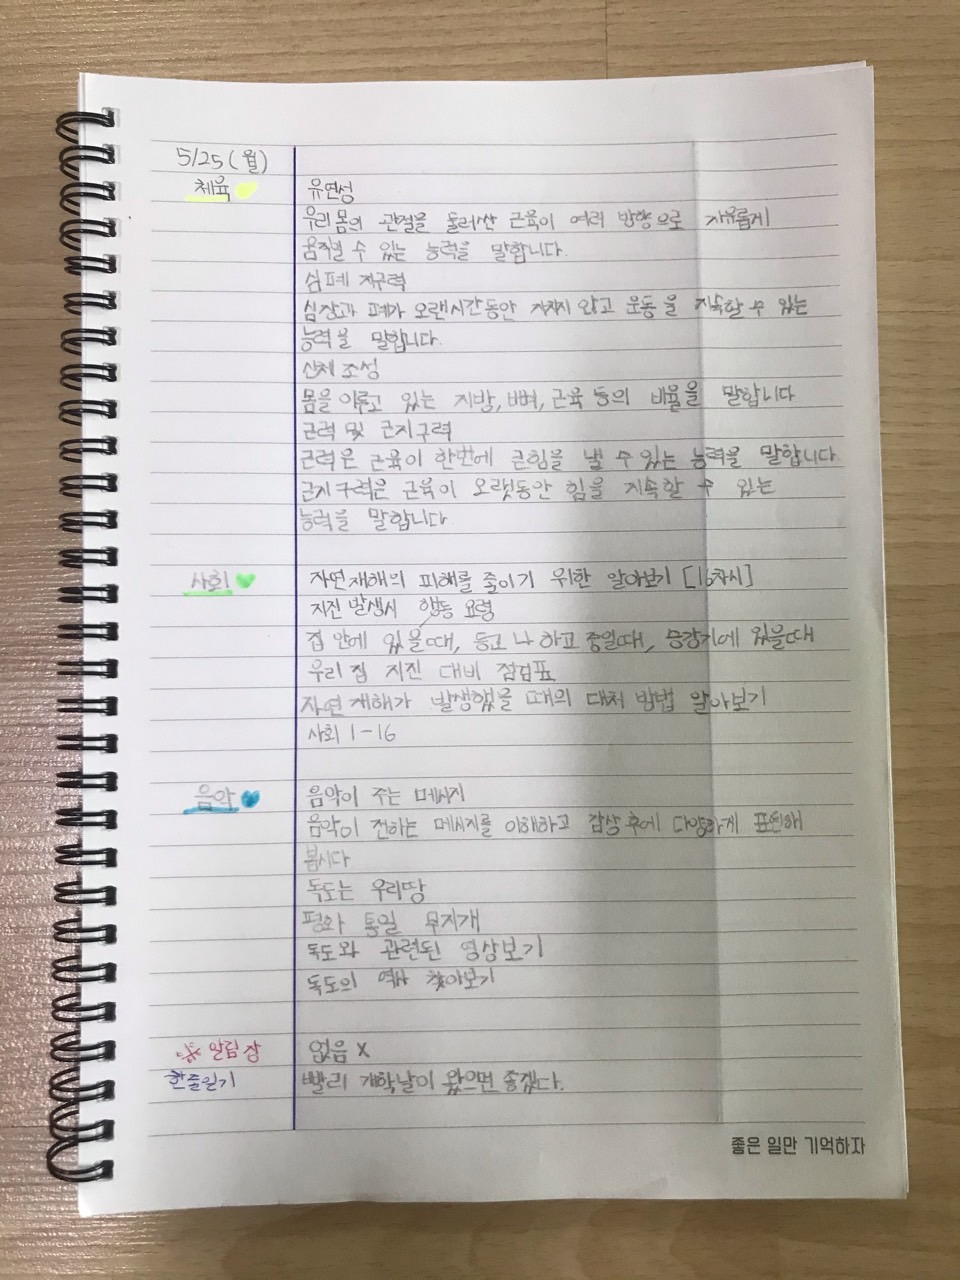 5/25 (월)
체육 유연성
우리 몸의 관절을 둘러싼 근육이 여러 방향으로 자유롭게
움직일 수 있는 능력을 말합니다.
심폐 지구력
심장과 폐가 오랜시간동안 지치지 않고 운동을 지속할 수 있는
능력을 말합니다.
신체 조성
몸을 이루고 있는 지방, 뼈, 근육 등의 비율을 말합니다
근력 및 근지구력
근력은 근육이 한번에 큰힘을 낼 수 있는 능력을 말합니다
근지구력은 근육이 오랫동안 힘을 지속할 수 있는
능력을 말합니다
사회 자연재해의 피해를 줄이기 위한 알아보기 [16차시]
지진 발생시 행동 요령
집 안에 있을때, 등교 나 하고 중일때, 승강기에 있을때
우리 집 지진 대비 점검표
자연 재해가 발생했을 때의 대처 방법 알아보기
사회 1-16
음악 음악이 주는 메시지
음악이 전하는 메시지를 이해하고 감상 후에 다양하게 표현해
봅시다
독도는 우리땅
평화 통일 무지개
독도와 관련된 영상보기
독도의 역사 찾아보기
※ 알림장 없음 X
한줄일기 빨리 개학날이 왔으면 좋겠다.
좋은 일만 기억하자